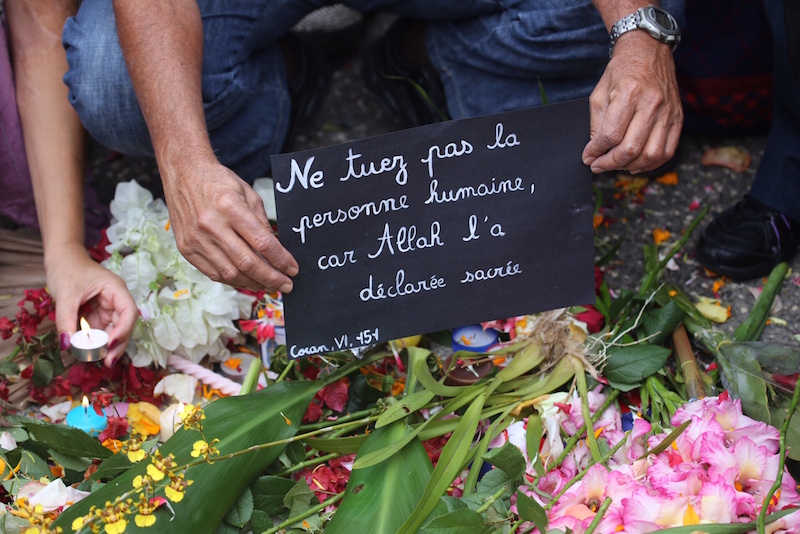 Ne tuez pas la
personne humaine,
car Allah l'a
déclarée sacrée
Coran, VI, 151